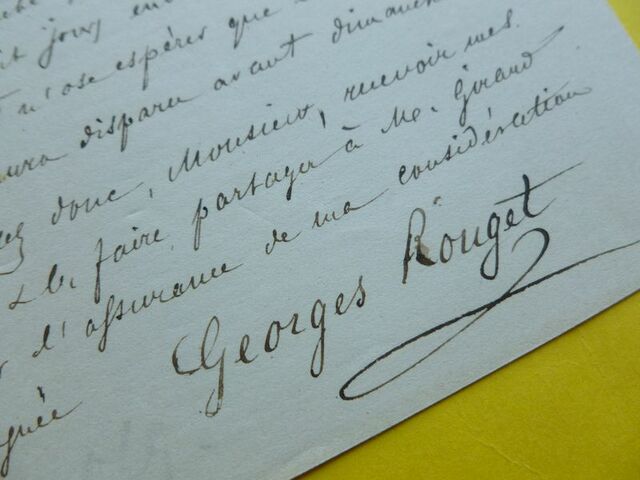 jours en
n'ose espérer que
disparu avant dimanche
donc, Monsieur, recevoir mes
& les faire partager à Mr. Girard
l'assurance de ma considération
Georges Rouget